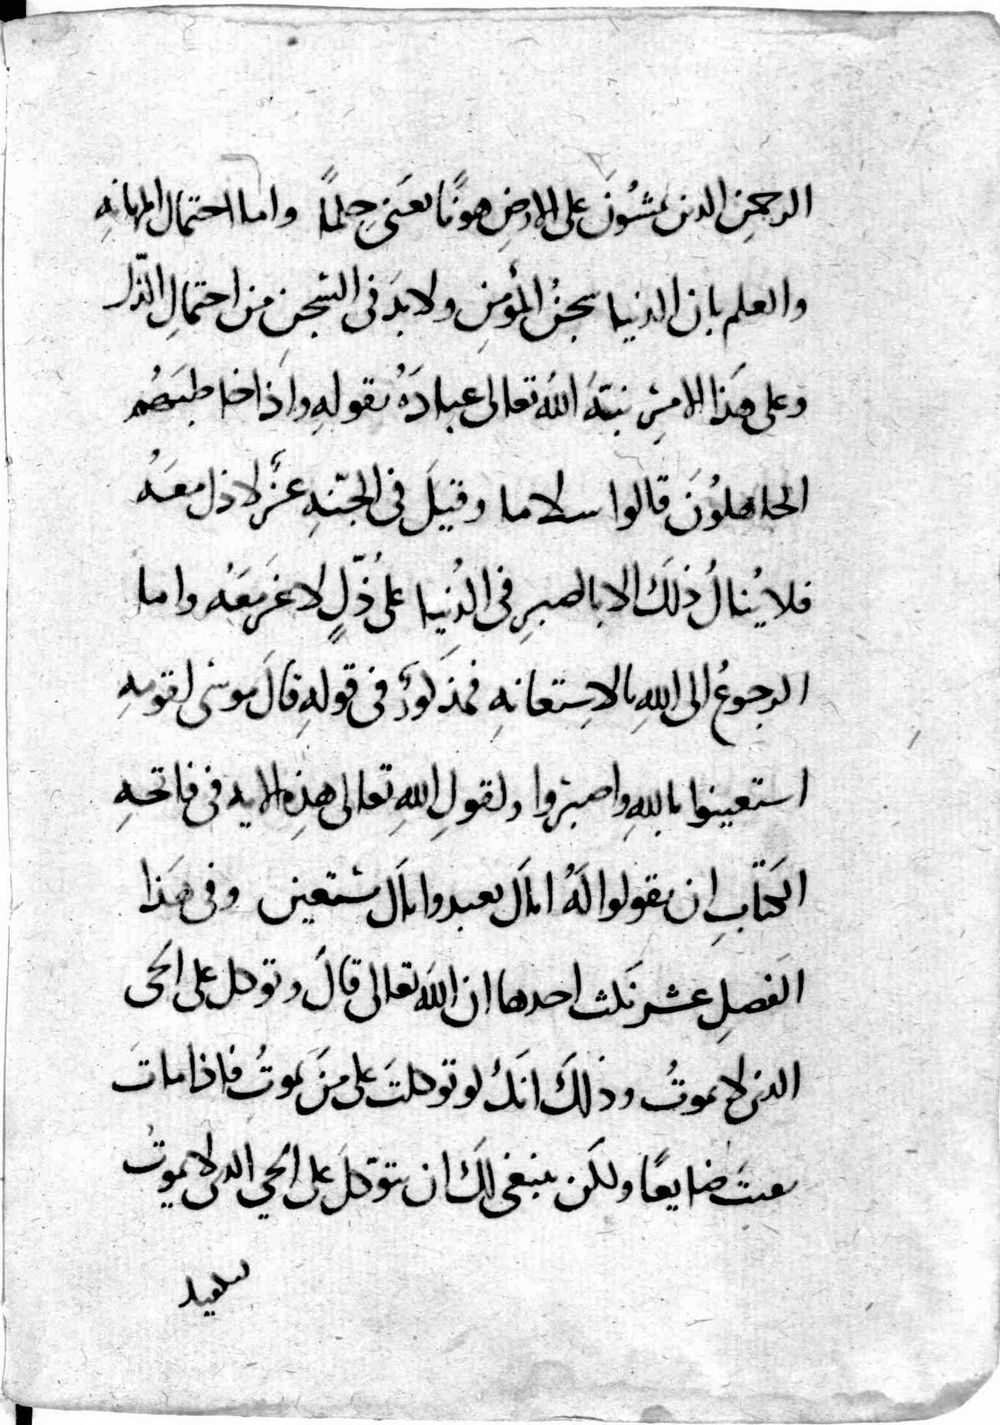 الرحمن الذين يمشُونَ على الارضِ هونًا يعنى حِلمًا واما احتمال المهانه
والعلم بان الدنيا سجنُ المؤمنِ ولا بدَ فى السّجن من احتمالِ الذّل
وعلى هَذا الامرِ نبّهَ اللهُ تعالى عبادَهُ بقولهِ واذا خاطبَهُم
الجاهلُونَ قالوا سلاما وقيلَ فى الجنّهِ عزٌ لا ذل معَهُ
فلا يُنالُ ذلكَ الا بالصبرِ فى الدُنيا على ذُلٍ لا عزَ معَهُ واما
الرجوعُ الى اللهِ بالاستعانهِ فمذكورٌ فى قولهِ قالَ موسى لقومهِ
استعينوا باللهِ واصبرُوا ولقولِ اللهِ تعالى هذِه الايه فى فاتحهِ
الكتابِ ان يقولوا لهُ اياك نعبد واياك نستعين وفى هَذا
الفصلِ عشر نكت احدها ان اللهَ تعالى قالَ وتوكل على الحى
الذى لا يموتُ وذلكَ انكَ لو توكلتَ على مَنْ يموتُ فاذا ماتَ
بقيتَ ضايعًا ولكن ينبغى لكَ ان تتوكلَ على الحي الذى لا يموتُ